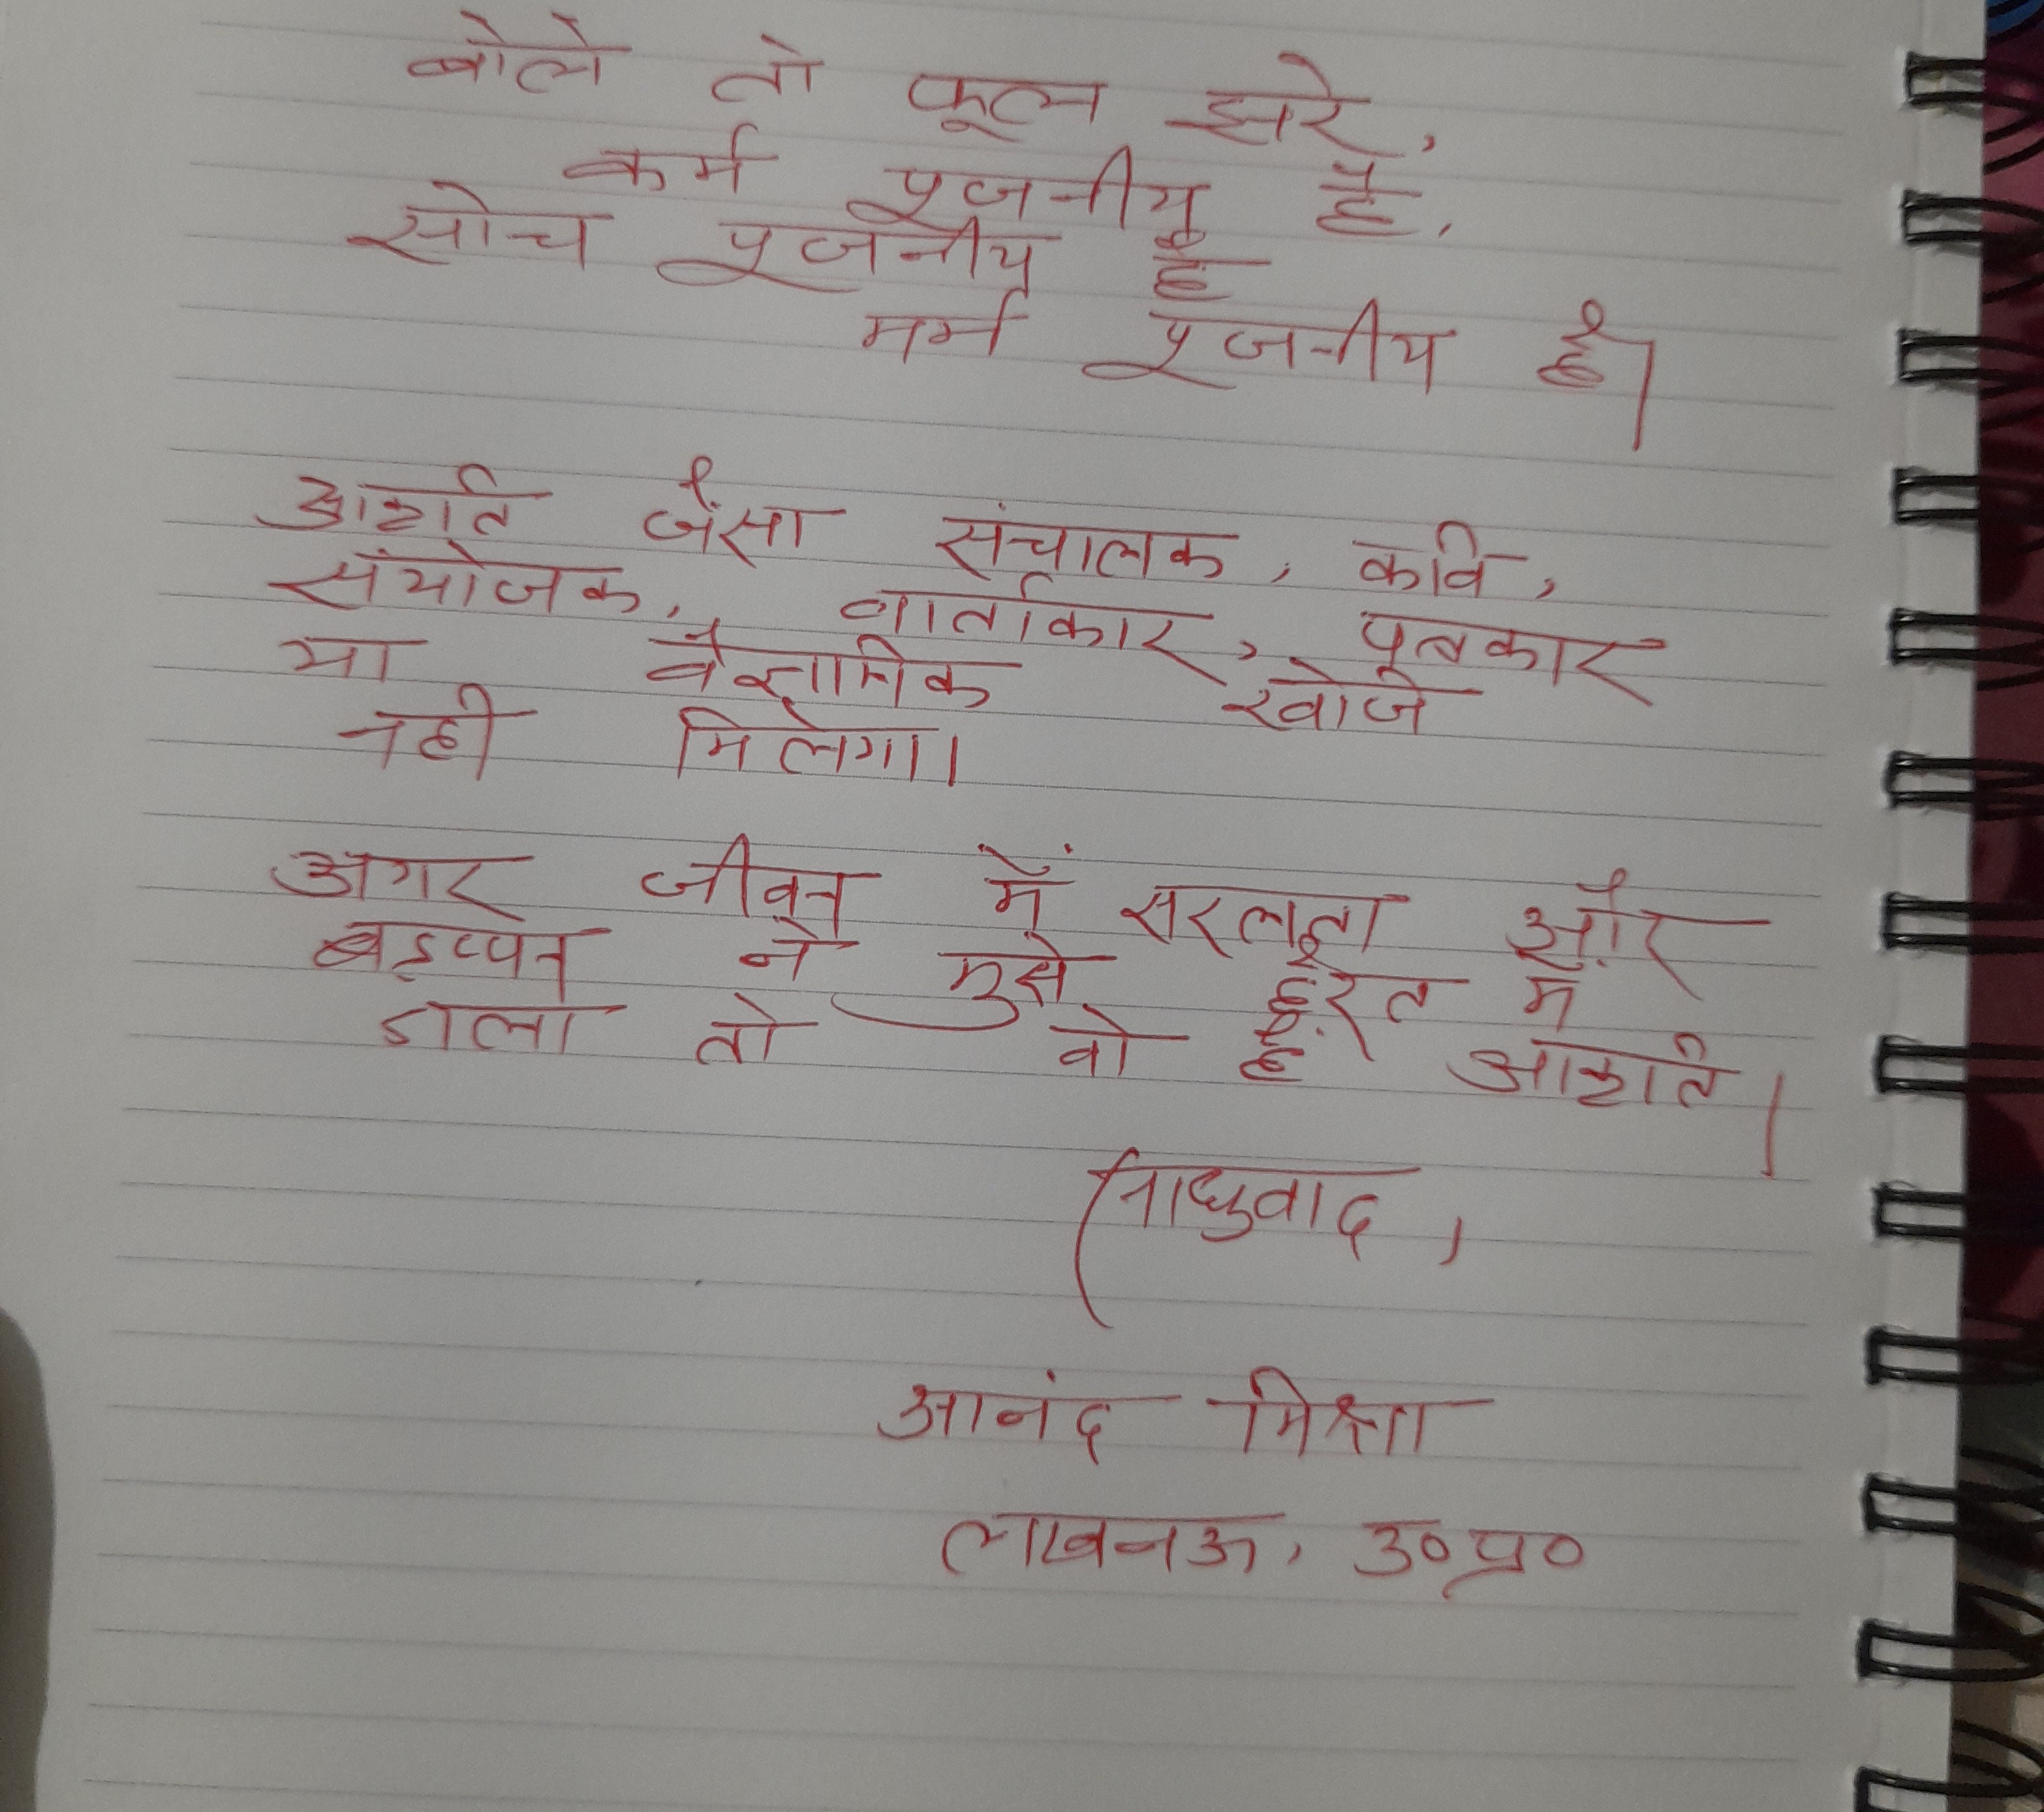 बोले तो फूल झरे,
कर्म पूजनीय है,
सोच पूजनीय है
मर्म पूजनीय है।
जैसा संचालक, कवि,
संयोजक, वार्ताकार, पत्रकार
या वैज्ञानिक खोजे
नही मिलेगा।
अगर जीवन में सरलता और
बड़प्पन ने मुझे हैरत में
डाला तो वो है
साधुवाद,
आनंद मिश्रा
लखनऊ, उ०प्र०